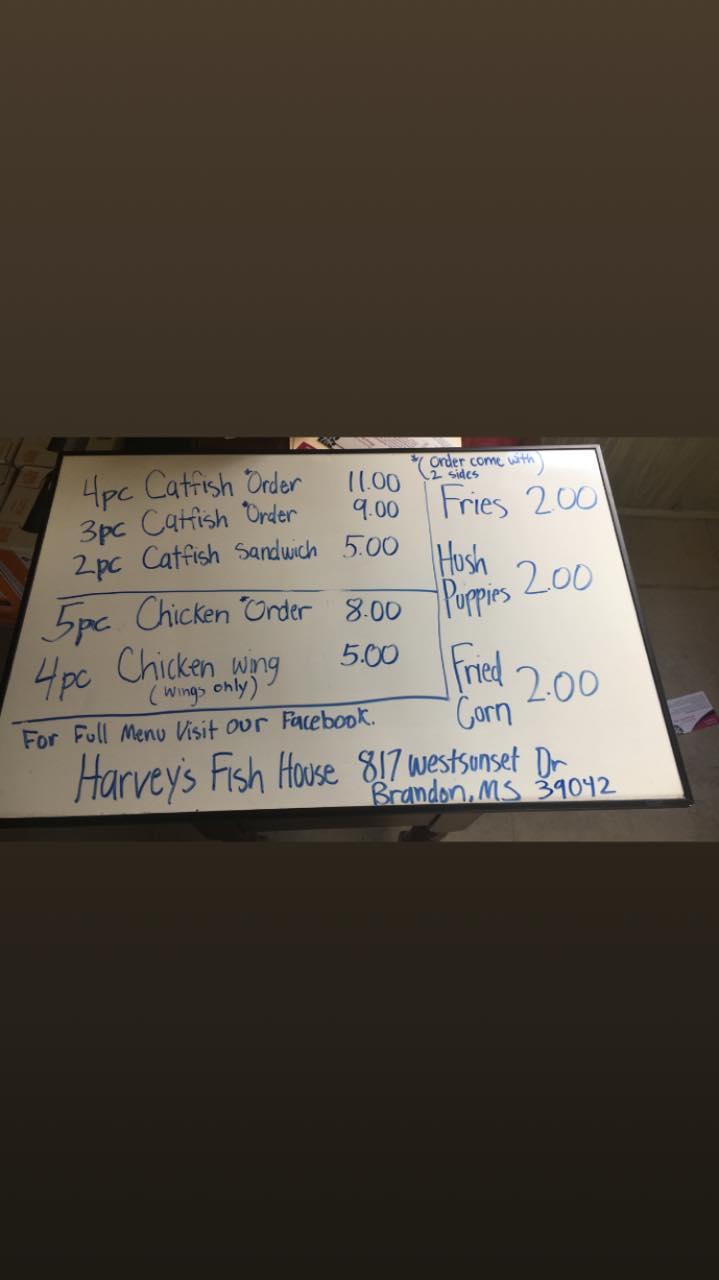 4pc Catfish *Order 11.00
3pc Catfish *Order 9.00
2pc Catfish Sandwich 5.00
5pc Chicken *Order 8.00
4pc Chicken wing 5.00
(wings only)
*(Order come with)
2 sides
Fries 2.00
Hush
Puppies 2.00
Fried
Corn 2.00
For Full Menu Visit our Facebook.
Harvey's Fish House 817 westsunset Dr
Brandon, MS 39042